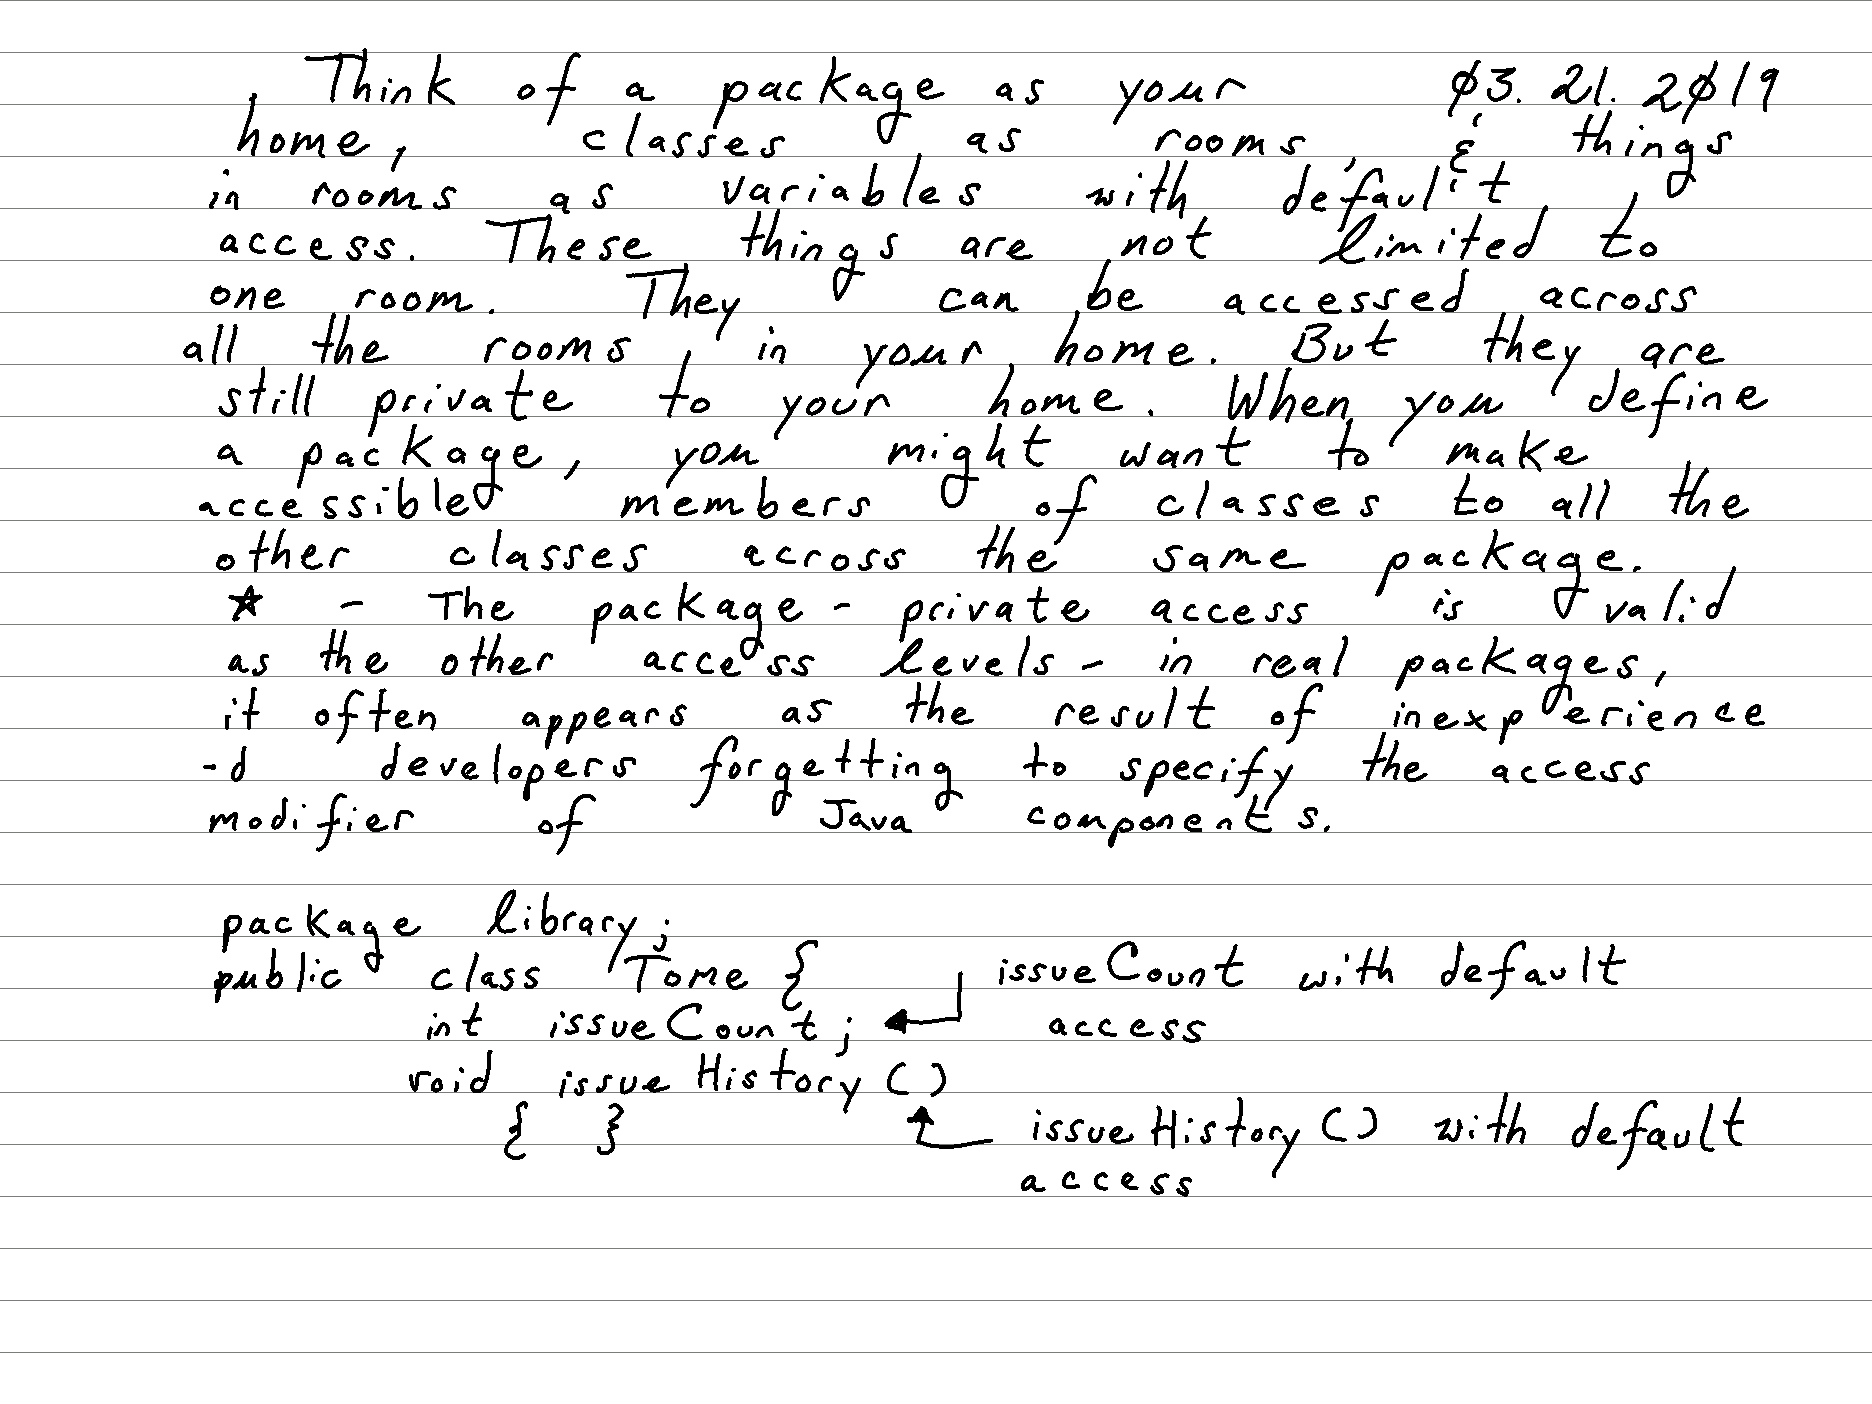 Think of a package as your ø3. 21. 2ø19
home, classes as rooms, & things
in rooms as variables with default
access. These things are not limited to
one room. They can be accessed across
all the rooms in your home. But they are
still private to your home. When you define
a package, you might want to make
accessible members of classes to all the
other classes across the same package.
☆ - The package - private access is valid
as the other access levels - in real packages,
it often appears as the result of inexperience
-d developers forgetting to specify the access
modifier of Java components.
package library;
public class Tome { issueCount with default
int issueCount; access
void issueHistory ()
{ } issueHistory () with default
access